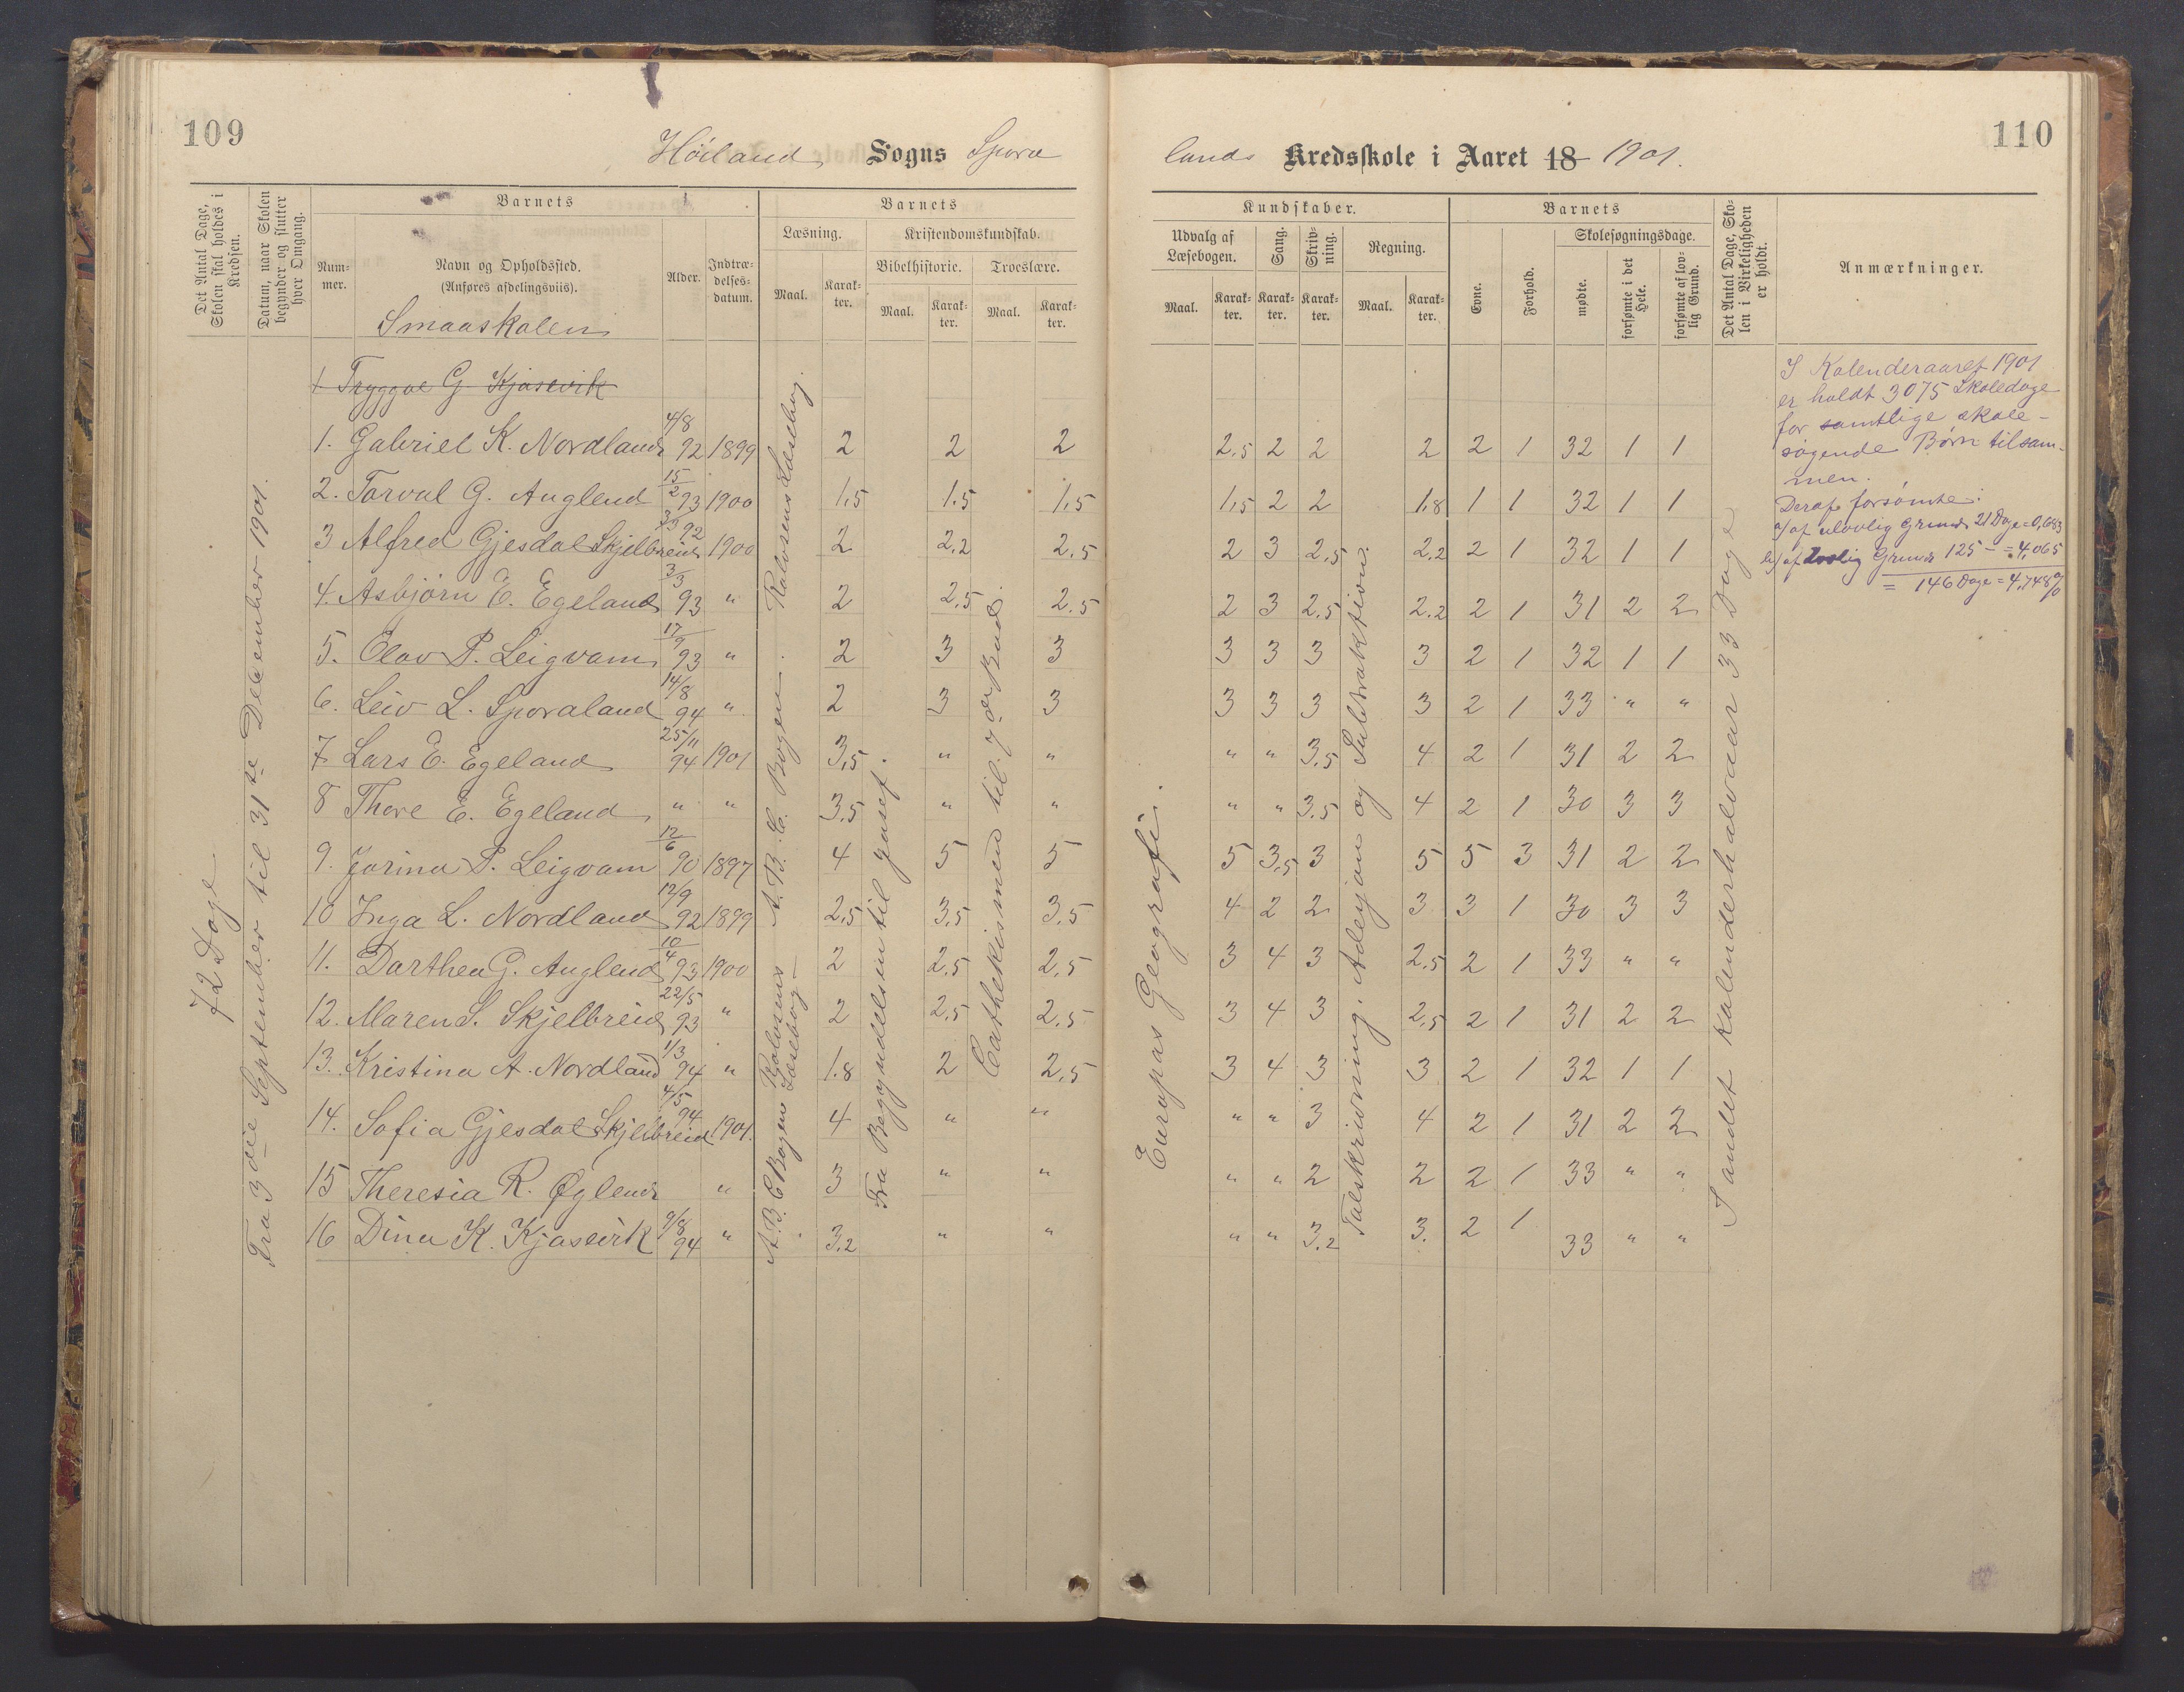 109
Höiland Sogns Spora
Det Antal Dage, Skolen skal holdes i Kredsen.
Datum, naar Skolen begynder og slutter hver Omgang.
Barnets
Barnets
Num-
mer.
Navn og Opholdssted.
(Anføres afdelingsviis).
Alder.
Indtræ-
delses-
datum.
Læsning.
Kristendomskundskab.
Bibelhistorie.
Troeslære.
Maal.
Karak-
ter.
Maal.
Karak-
ter.
Maal.
Karak-
ter.
Smaaskolen
72 Dage
Fra 3die September til 31te December 1901.
1 Tryggve G Kjosevik
1. Gabriel K. Nordland 4/8 92 1899 2 2 2
2. Torval G. Auglend 15/2 93 1900 1,5 1.5 1,5
3 Alfred Gjesdal Skjelbreid 92 1900 2 2,2 2.5
4. Asbjørn E. Egeland 3/3 93 " 2 2,5 2.5
5. Olav P. Leigvam 17/9 93 " 2 3 3
6. Leiv L. Sporaland 14/8 94 " 2 3 3
7 Lars E. Egeland 25/11 94 1901 3,5 " "
8 Thore E. Egeland " " 3.5 " "
9. Jorina P. Leigvam 12/6 90 1897 4 5 5
10 Inga L. Nordland 12/9 92 1899 2,5 3,5 3.5
11. Darthea G. Auglend 10/4 93 1900 2 2,5 2,5
12. Maren S. Skjelbreid 22/5 93 " 2 2,5 2,5
13. Kristina A. Nordland 1/3 94 " 1.8 2 2,5
14. Sofia Gjesdal Skjelbreid 4/5 94 1901. 4 " "
15 Theresia R. Øglend " 3 " "
16 Dina K. Kjosevik 9/8 94 " 3,2 " "
A.B.C. Bogen. Rolvsens Læsebog.
A.B.C Bogen Rolvsens Læsebog
Fra Begyndelsen til Josef.
Cathekismen til 7de Bud.
110
lands Kredsskole i Aaret 18 1901.
Kundskaber.
Barnets
Udvalg af
Læsebogen.
Sang.
Skriv-
ning.
Regning.
Evne.
Forhold.
Skolesøgningsdage.
Maal.
Karak-
ter.
Karak-
ter.
Karak-
ter.
Maal.
Karak-
ter.
mødte.
forsømte i det Hele.
forsømte af lov-
lig Grund.
Det Antal Dage, Sko-
len i Virkeligheden
er holdt.
Anmærkninger.
2.5 2 2 2 2 1 32 1 1
1,5 2 2 1.8 1 1 32 1 1
2 3 2,5 2.2 2 1 32 1 1
2 3 2,5 2.2 2 1 31 2 2
3 3 3 3 2 1 32 1 1
3 3 3 3 2 1 33 " "
" " 3.5 4 2 1 31 2 2
" " 3.5 4 2 1 30 3 3
5 3,5 3 5 5 3 31 2 2
4 2 2 3 3 1 30 3 3
3 4 3 2,5 2 1 33 " "
3 4 3 2,5 2 1 31 2 2
3 4 3 3 2 1 32 1 1
" " 3 4 2 1 31 2 2
" " 2 2 2 1 33 " "
" " 3.2 3. 2 1 33 " "
Europas Geografi.
Talskrivning. Adisjon og Subtraktion.
I andet Kalenderhalvaar 33 Dage
I Kalenderaaret 1901
er holdt 3075 Skoledage
for samtlige skole-
søgende Børn tilsam-
men.
Deraf forsømte:
a/ af ulovlig Grund 21 Dage = 0,683
b/ af lovlig Grund 125 - = 4,065
= 146 Dage = 4,748%